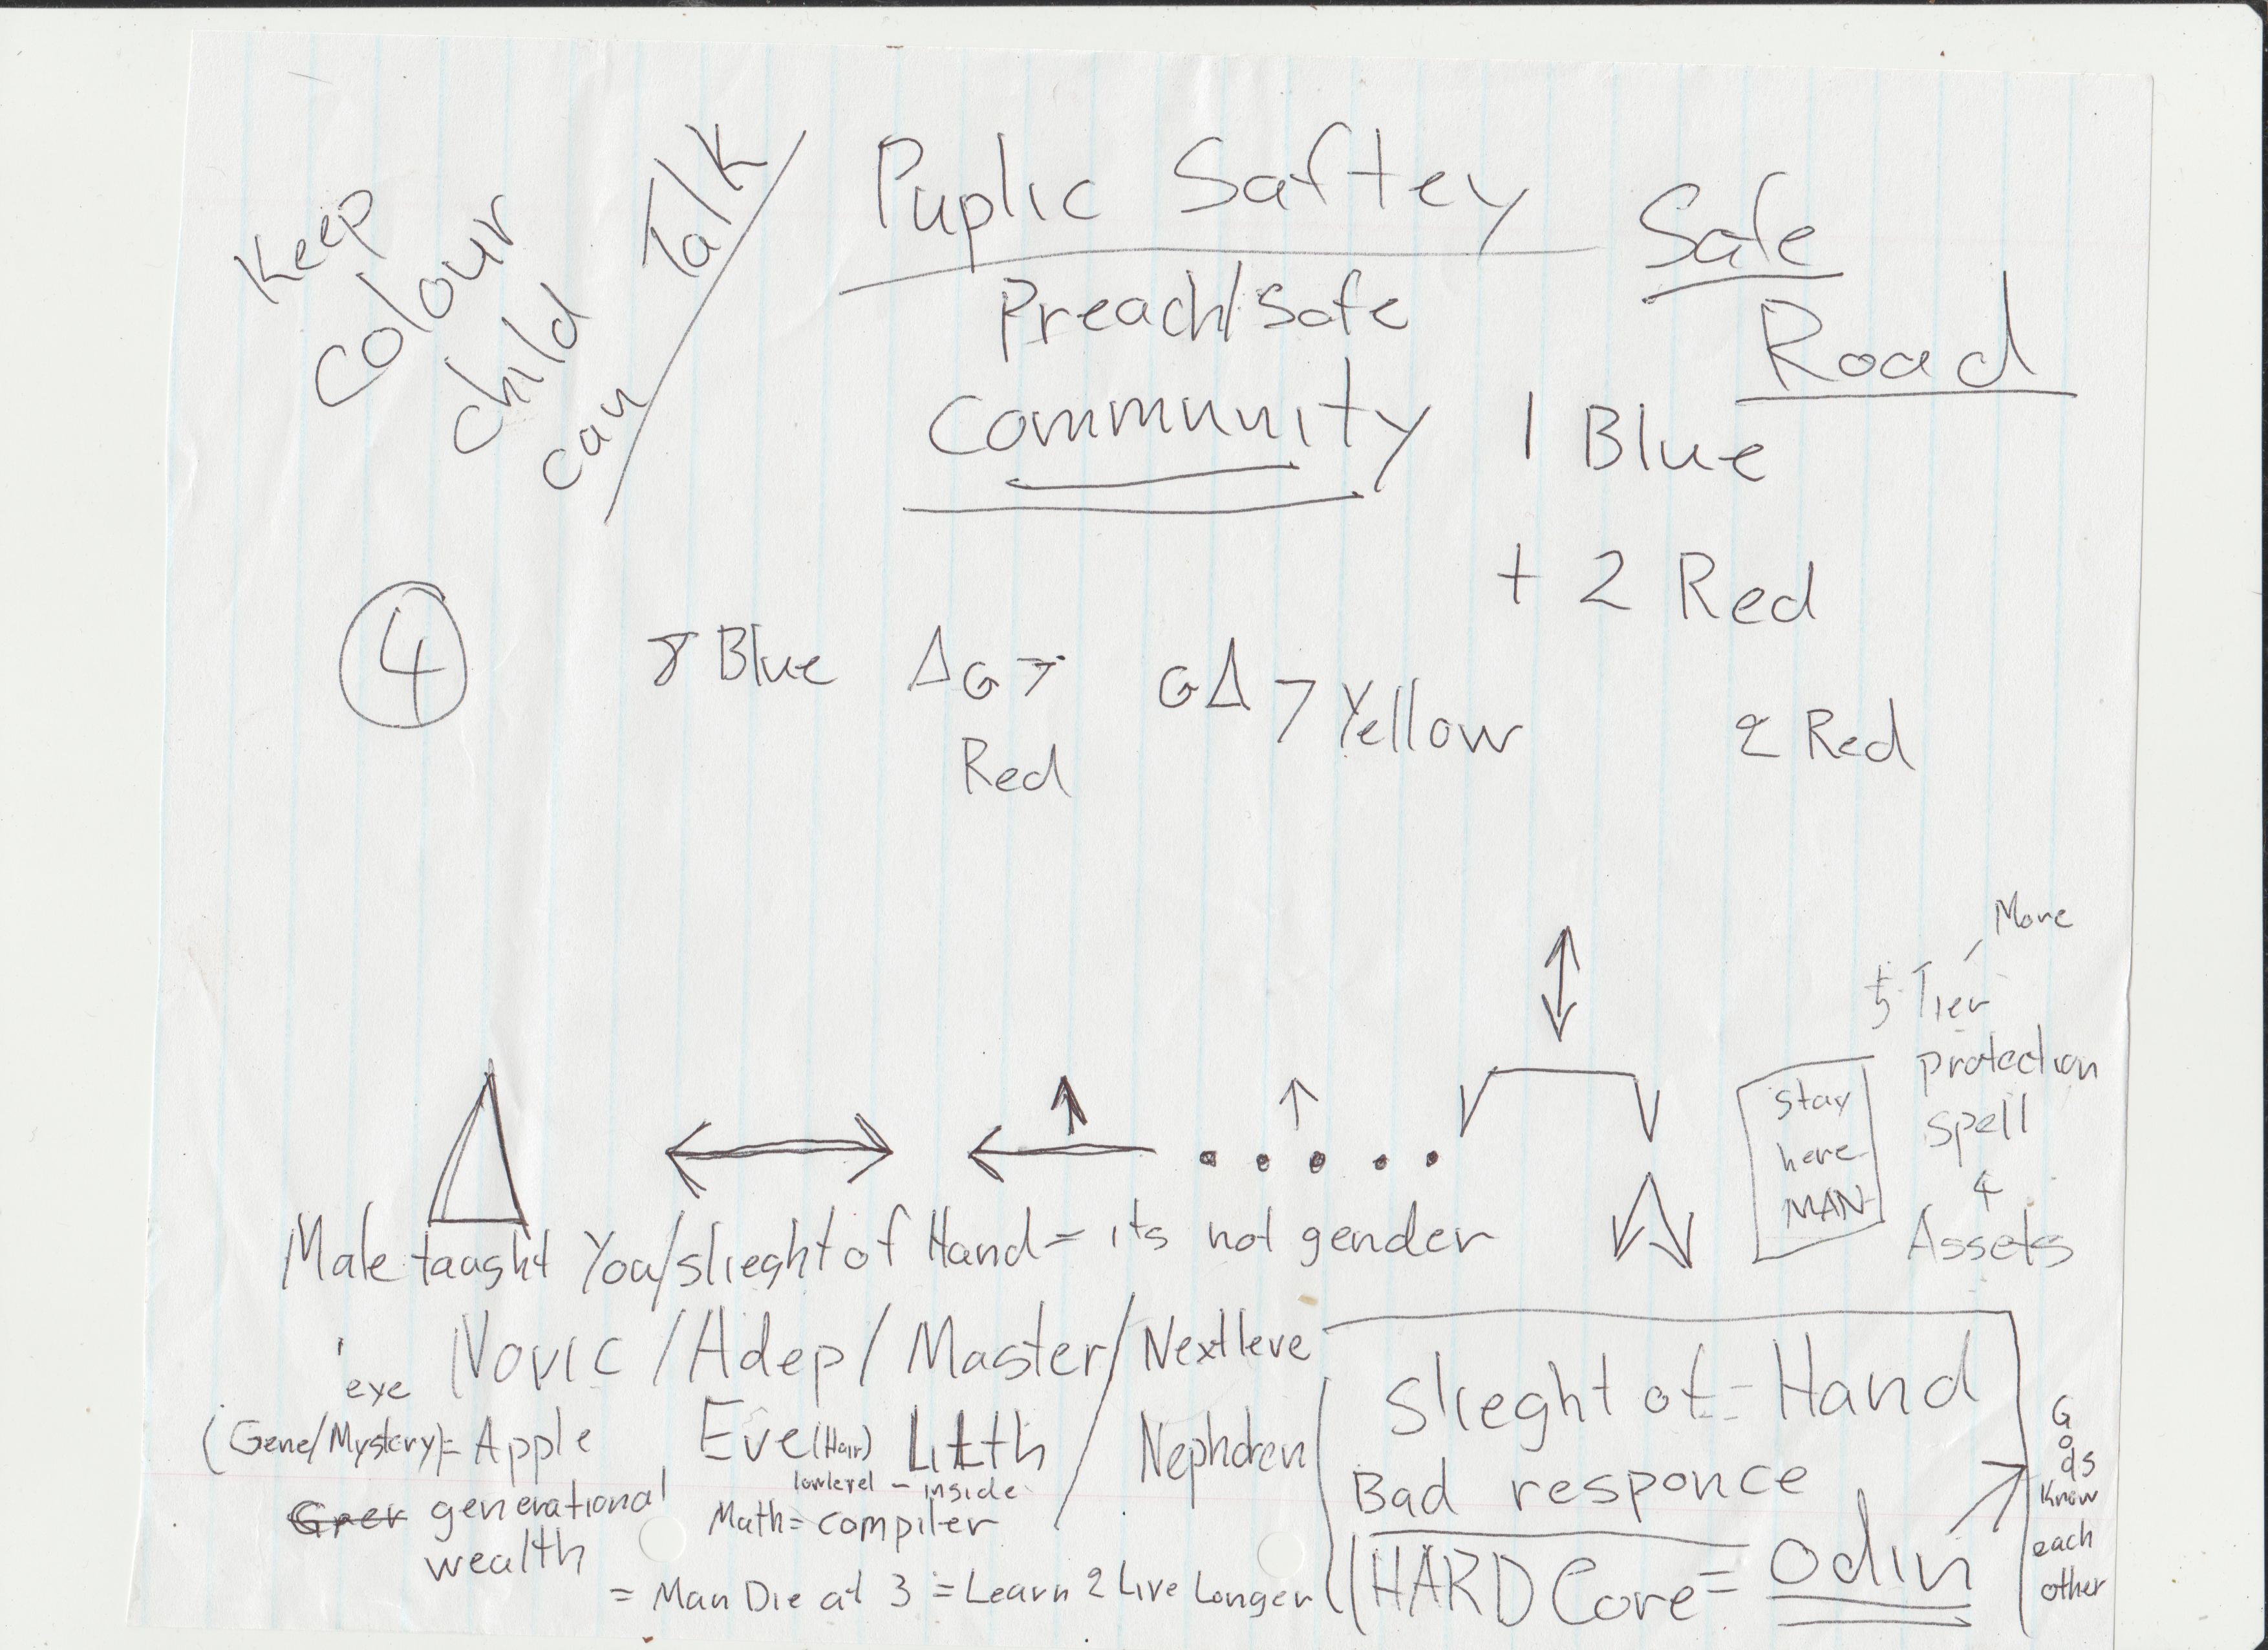 Keep
Colour
child
can Talk
Puplic Saftey
Preach/safe
Community
Safe
Road
1 Blue
+ 2 Red
4
8 Blue
ΔG >
Red
GΔ > Yellow
2 Red
More
5 Tier
protection
spell
4
Assets
stay
here
MAN
Male taught You/slieght of Hand = its not gender
Novic / Adep / Master / Nextleve
exe
(Gene/Mystery) = Apple
Eve (Hair)
lowlevel - inside
Math = compiler
generational
wealth
= Man Die at 3 = Learn 2 Live Longer
Slieght of = Hand
Bad responce
HARD Core = odin
Gods
know
each
other